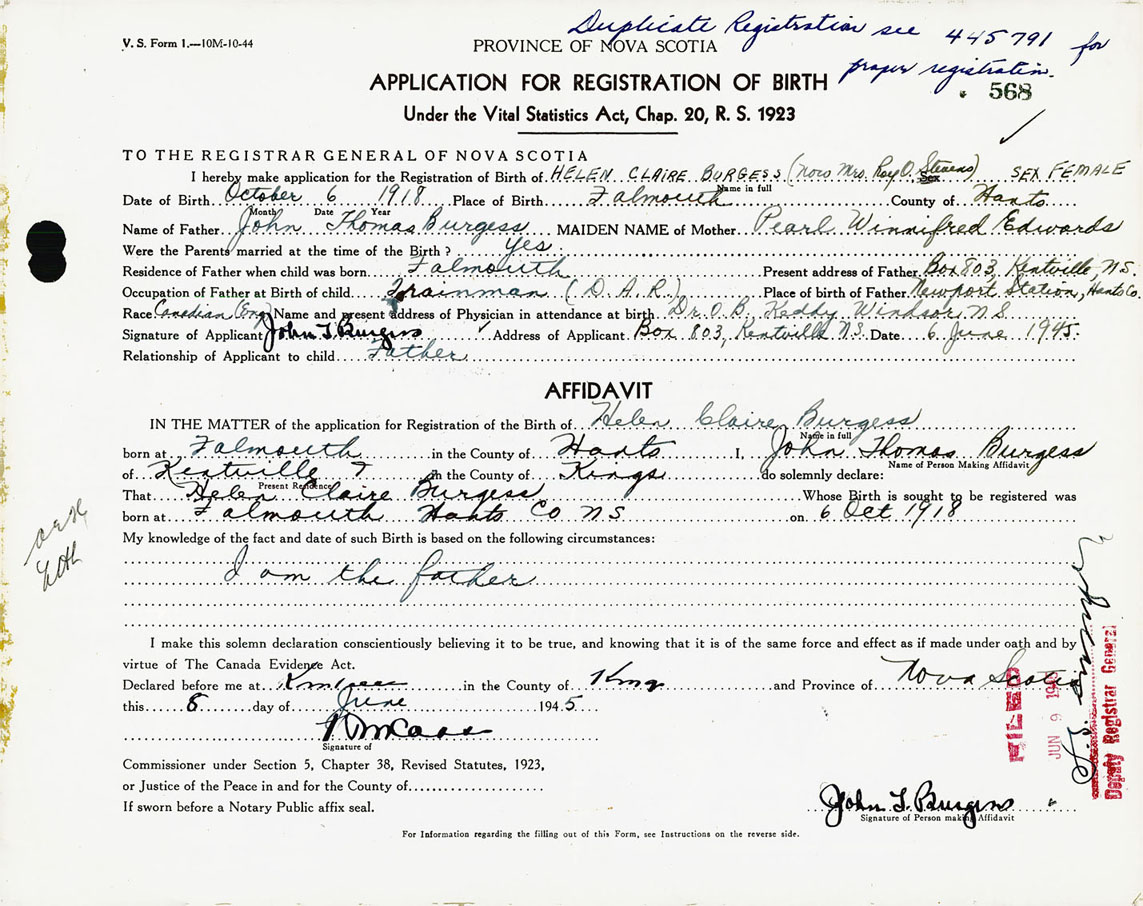 Duplicate Registration see 445791 for
proper registration.
V. S. Form 1.—10M-10-44
PROVINCE OF NOVA SCOTIA
APPLICATION FOR REGISTRATION OF BIRTH
568
Under the Vital Statistics Act, Chap. 20, R. S. 1923
TO THE REGISTRAR GENERAL OF NOVA SCOTIA
I hereby make application for the Registration of Birth of HELEN CLAIRE BURGESS (Now Mrs. Roy O. Stevens) Sex SEX FEMALE
Name in full
Date of Birth October 6 1918 Place of Birth Falmouth County of Hants
Month Date Year
Name of Father John Thomas Burgess MAIDEN NAME of Mother Pearl Winnifred Edwards
Were the Parents married at the time of the Birth? Yes
Residence of Father when child was born Falmouth Present address of Father Box 803, Kentville, N.S.
Occupation of Father at Birth of child Trainman (D.A.R.) Place of birth of Father Newport Station, Hants Co.
Race Canadian (Eng) Name and present address of Physician in attendance at birth Dr. O. B. Keddy Windsor N.S
Signature of Applicant John T. Burgess Address of Applicant Box 803, Kentville N.S. Date 6 June 1945.
Relationship of Applicant to child Father
AFFIDAVIT
IN THE MATTER of the application for Registration of the Birth of Helen Claire Burgess
Name in full
born at Falmouth in the County of Hants I, John Thomas Burgess
Name of Person Making Affidavit
of Kentville in the County of Kings do solemnly declare:
Present Residence
That Helen Claire Burgess Whose Birth is sought to be registered was
born at Falmouth Hants Co NS on 6 Oct 1918
My knowledge of the fact and date of such Birth is based on the following circumstances:
I am the father
I make this solemn declaration conscientiously believing it to be true, and knowing that it is of the same force and effect as if made under oath and by
virtue of The Canada Evidence Act.
Declared before me at in the County of Kings and Province of Nova Scotia
this 8 day of June 1945
Signature of
Commissioner under Section 5, Chapter 38, Revised Statutes, 1923,
or Justice of the Peace in and for the County of
If sworn before a Notary Public affix seal.
John T. Burgess
Signature of Person making Affidavit
For Information regarding the filling out of this Form, see Instructions on the reverse side.
FILED
JUN 9 1945
Deputy Registrar General